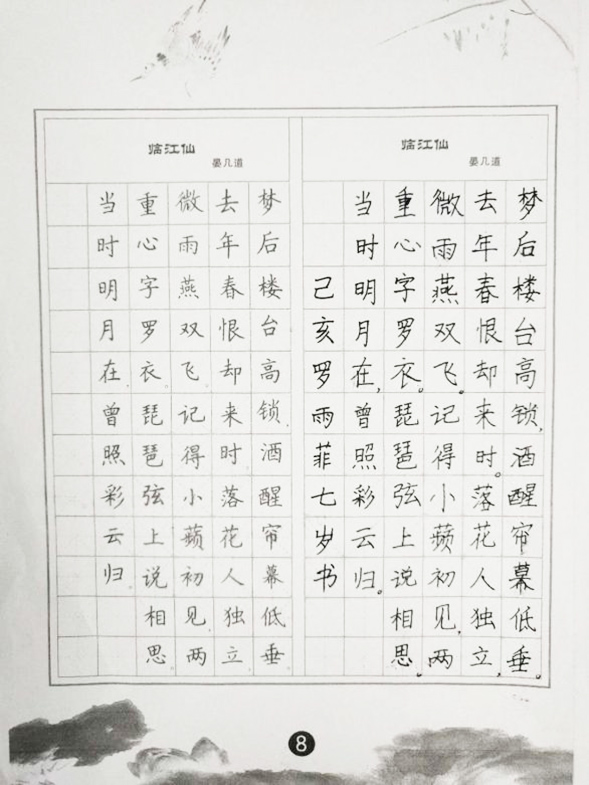 临江仙
晏几道
梦后楼台高锁,酒醒帘幕低垂。
去年春恨却来时。落花人独立,
微雨燕双飞。记得小𬞟初见,两
重心字罗衣。琵琶弦上说相思。
当时明月在,曾照彩云归。
己亥罗雨菲七岁书
临江仙
晏几道
梦后楼台高锁,酒醒帘幕低垂。
去年春恨却来时。落花人独立,
微雨燕双飞。记得小𬞟初见,两
重心字罗衣。琵琶弦上说相思。
当时明月在,曾照彩云归。
8